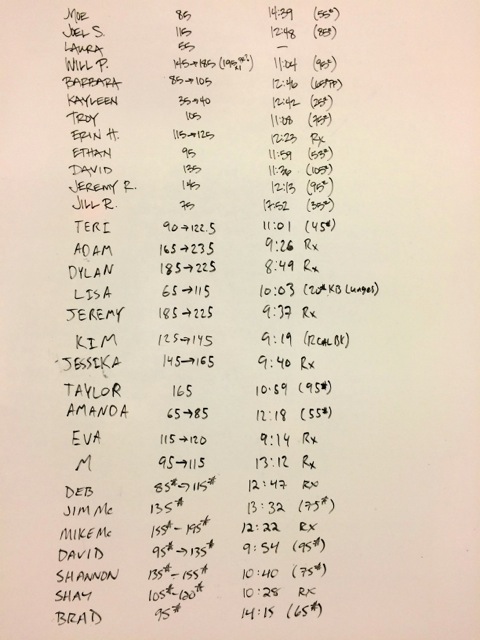 MOE 85 14:39 (55#)
JOEL S. 115 12:48 (85#)
LAURA 55 —
WILL P. 145→185 11:04 (95#)
BARBARA 85→105 12:46
KAYLEEN 35→40 12:42 (25#)
TROY 105 11:08 (75#)
ERIN H. 115→125 12:23 Rx
ETHAN 95 11:59 (53#)
DAVID 135 11:36 (105#)
JEREMY R. 145 12:13 (95#)
JILL R. 75 17:52 (35#)
TERI 90→122.5 11:01 (45#)
ADAM 165→235 9:26 Rx
DYLAN 185→225 8:49 Rx
LISA 65→115 10:03 (20# KB Lunges)
JEREMY 185→225 9:37 Rx
KIM 125→145 9:19
JESSIKA 145→165 9:40 Rx
TAYLOR 165 10:59 (95#)
AMANDA 65→85 12:18 (55#)
EVA 115→120 9:14 Rx
M 95→115 13:12 Rx
DEB 85#→115# 12:47 RX
JIM Mc 135# 13:32 (75#)
MIKE Mc 155#-195# 12:22 RX
DAVID 95#→135# 9:54 (95#)
SHANNON 135#-155# 10:40 (75#)
SHAY 105#-120# 10:28 RX
BRAD 95# 14:15 (65#)